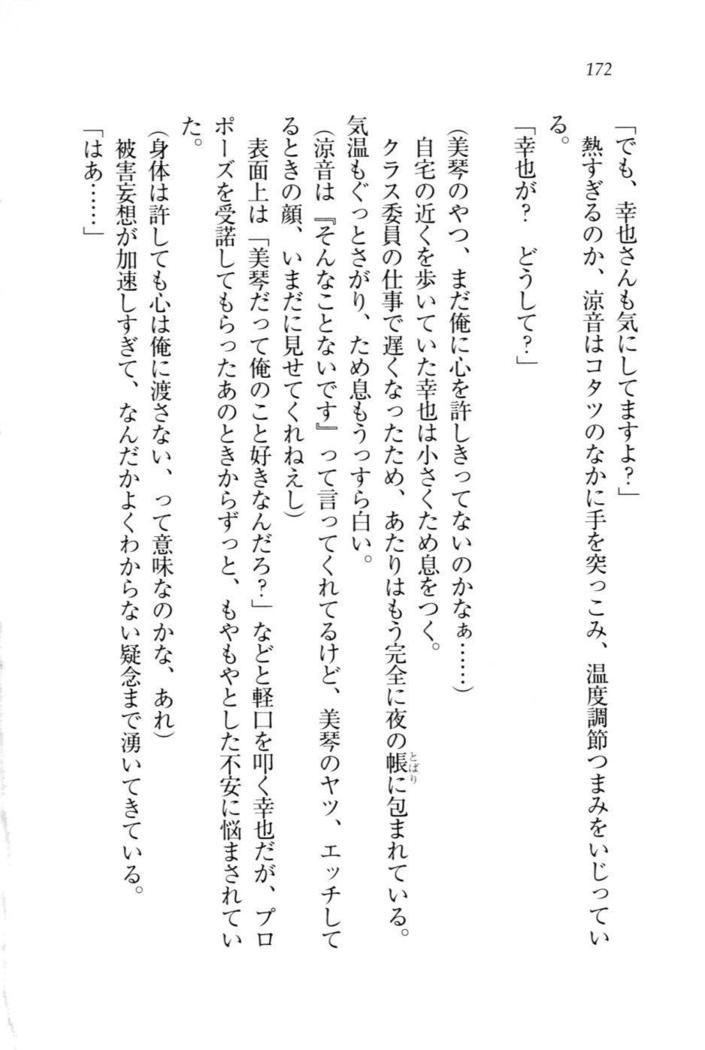 172
「でも、幸也さんも気にしてますよ?」
熱すぎるのか、涼音はコタツのなかに手を突っこみ、温度調節つまみをいじってい
る。
「幸也が? どうして?」
(美琴のやつ、まだ俺に心を許しきってないのかなぁ……)
自宅の近くを歩いていた幸也は小さくため息をつく。
クラス委員の仕事で遅くなったため、あたりはもう完全に夜の帳に包まれている。
とばり
気温もぐっとさがり、ため息もうっすら白い。
(涼音は『そんなことないです』って言ってくれてるけど、美琴のヤツ、エッチして
るときの顔、いまだに見せてくれねえし)
表面上は「美琴だって俺のこと好きなんだろ?」などと軽口を叩く幸也だが、プロ
ポーズを受諾してもらったあのときからずっと、もやもやとした不安に悩まされてい
た。
(身体は許しても心は俺に渡さない、って意味なのかな、あれ)
被害妄想が加速しすぎて、なんだかよくわからない疑念まで湧いてきている。
「はあ……」